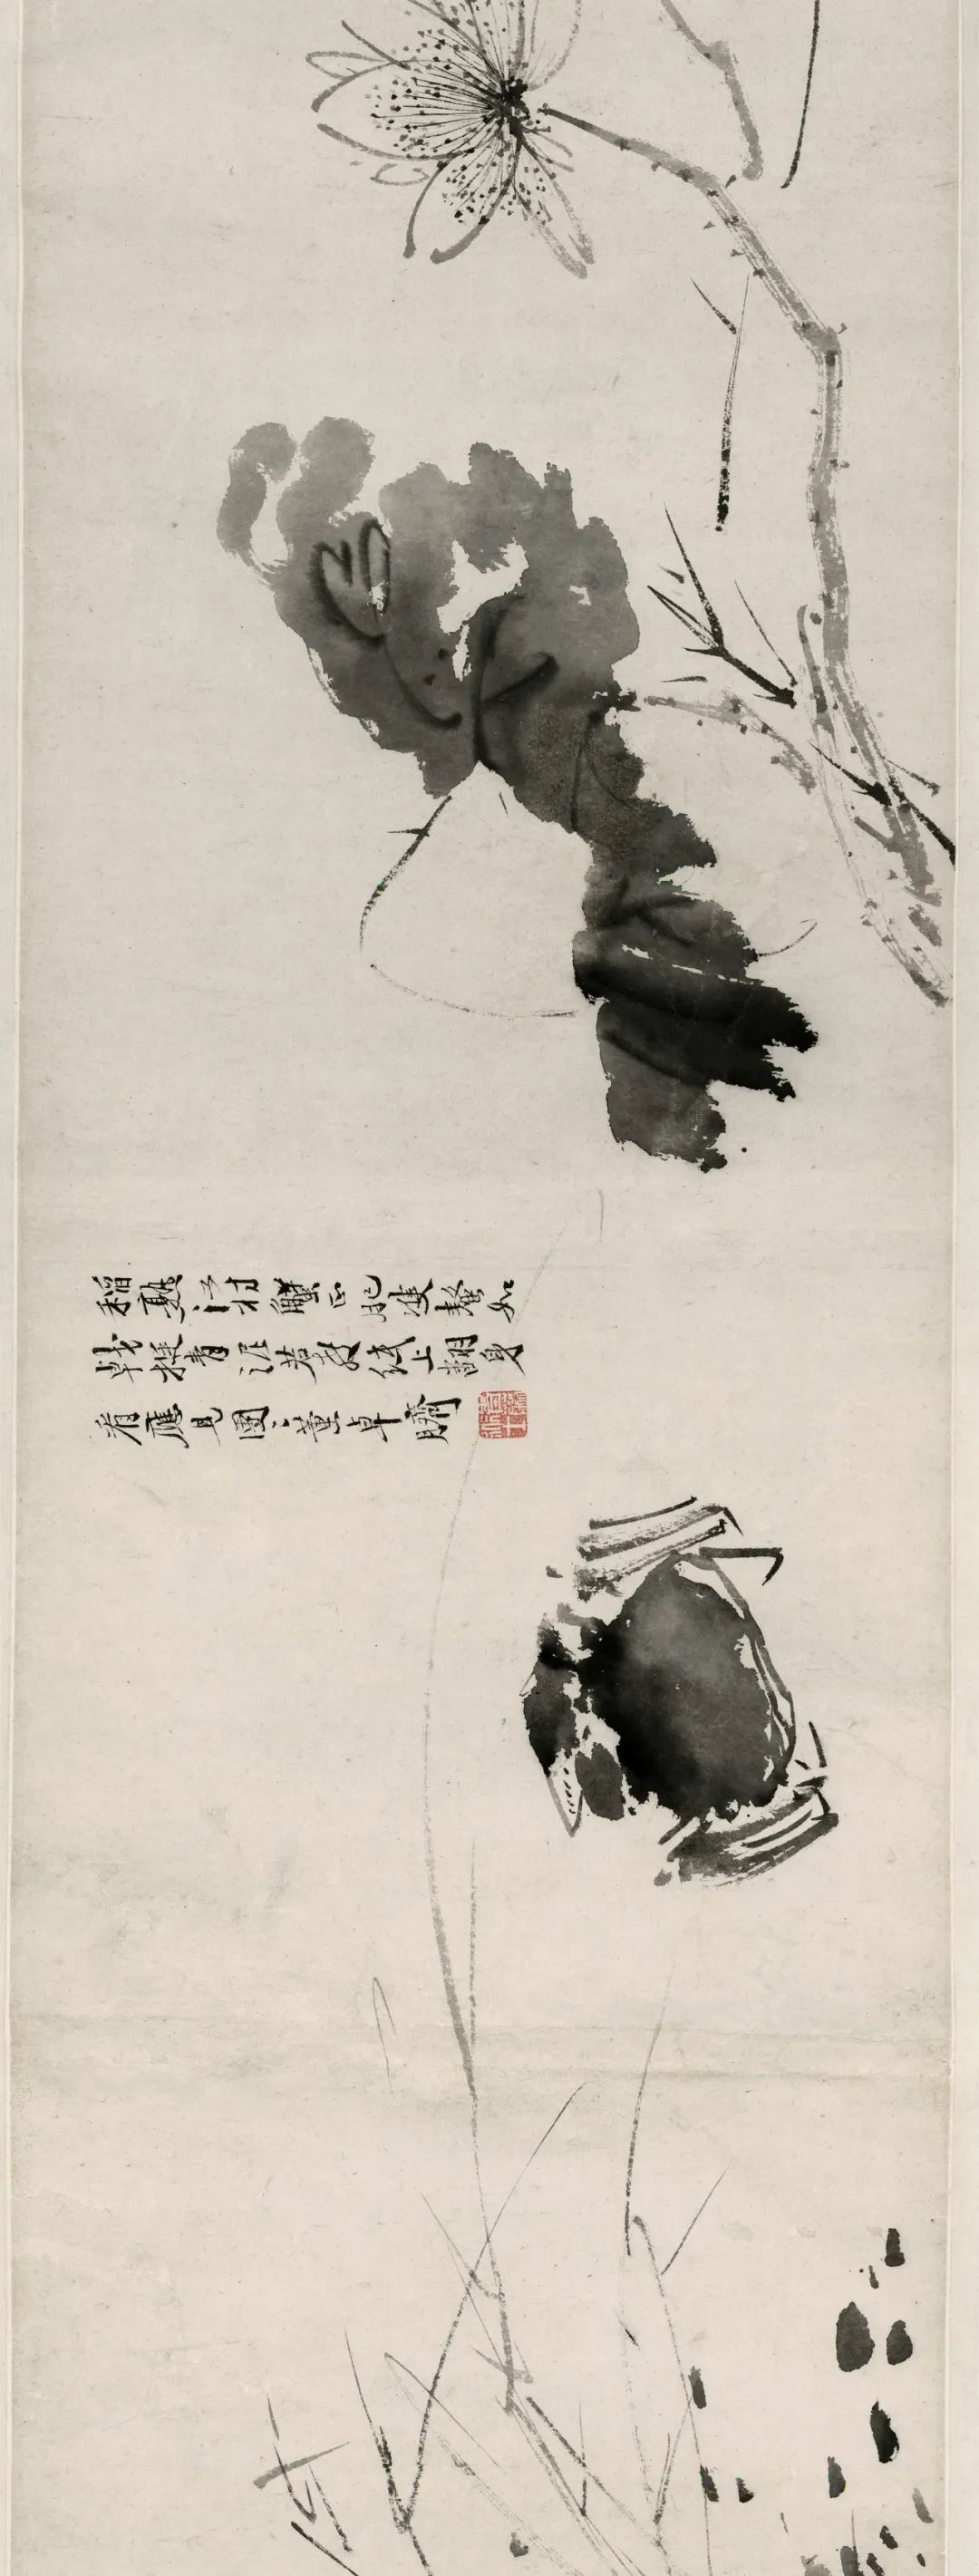 稻熟江村蟹正肥雙螯如
戟挺青泥若教紙上翻身
看應見團〻董卓臍